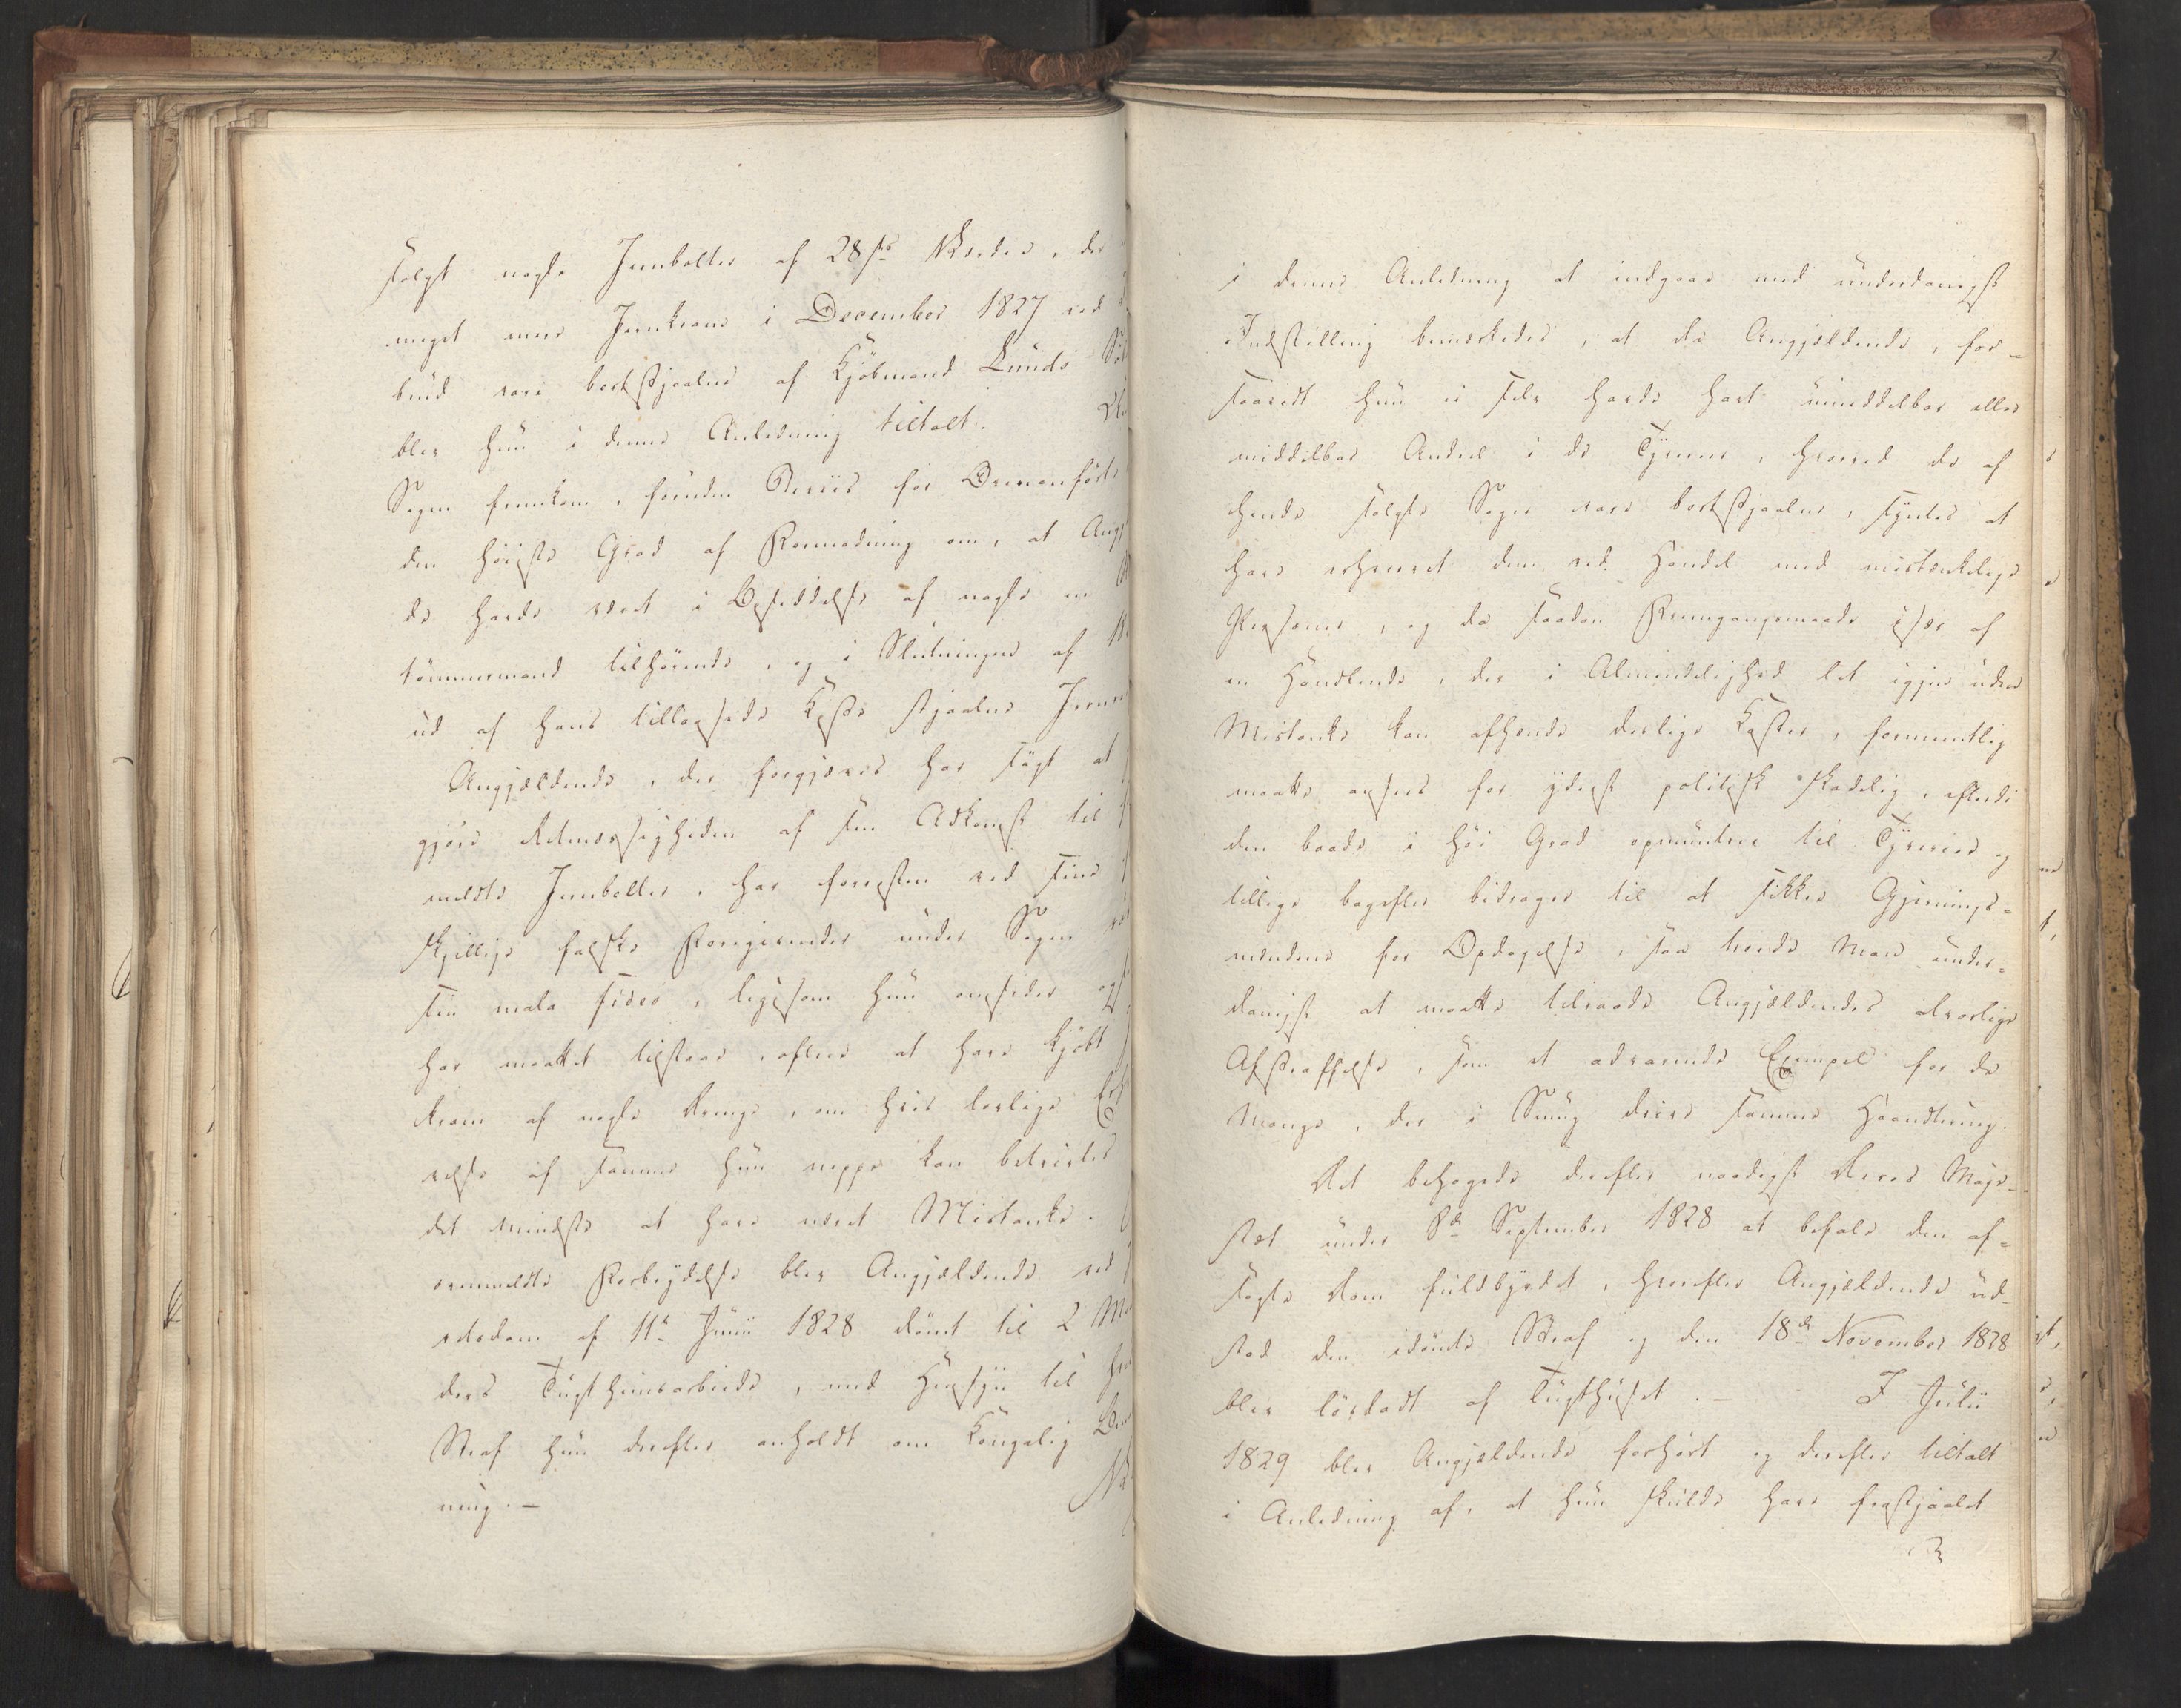 solgt nogle Jernbolter af 28 sk Værdie, der
meget mere Jernkram i December 1827 ved
brud vare bortstjaalne af Kjöbmand Lunds
blev hun i denne Anledning tiltalt.
Sagen fremkom, foruden Beviis for Ovenanförte
den höieste Grad af Formodning om, at Ang
de havde været i Besiddelse af nogle en
tömmermand tilhörende, og i Slutningen af
ud af hans tillaasede Kiste stjaalne Jern
Angjældende, der forgjæves har sögt at
gjöre Retmæssigheden af sin Adkomst til
meldte Jernbolter, har forresten ved sine
skjellige falske Foregivender under Sagen
sin mala fides, ligesom hun omsider og
har maattet tilstaae, afleed at have kjöbt
kram af nogle Drenge, om hvis lovlige Erh
velse af samme hun neppe kan betvivles
det mindste at have næret Mistanke.
ovenmeldte Forbrydelse blev Angjældende ved
retsdom af 11te Junii 1828 dömt til 2 M
ders Tugthuusarbeide, med Hensyn til
Straf hun derefter anholdt om Kongelig Be
ning. —
i denne Anledning at indgaae med underdanigst
Indstilling bemærkedes, at da Angjældende, for-
saavidt hun ei selv havde havt umiddelbar eller
middelbar Andeel i de Tyverier, hvorved de af
hende solgte Sager vare bortstjaalne, syntes at
have erhvervet dem ved Handel med mistænkelige
Personer, og da saadan Fremgangsmaade især af
en Handlende, der i Almindelighed let igjen uden
Mistanke kan afhænde deslige Koster, formeentlig
maatte ansees for yderst politisk skadelig, efterdi
den baade i höi Grad opmuntrer til Tyverier og
tillige bagefter bidrager til at sikkre Gjernings-
mændene for Opdagelse, saa troede Man under-
danigst at maatte tilraade Angjældendes alvorlige
Afstraffelse, som et advarende Exempel for de
Mange, der i Smug drive samme Haandtering.
Det behagede derefter naadigst Deres Maje-
stæt under 8de September 1828 at befale den af-
sagte Dom fuldbyrdet, hvorefter Angjældende ud-
stod den idömte Straf og den 18de November 1828
blev lösladt af Tugthuset. — I Julii
1829 blev Angjældende forhört og derefter tiltalt
i Anledning af, at hun skulde have frastjaalet